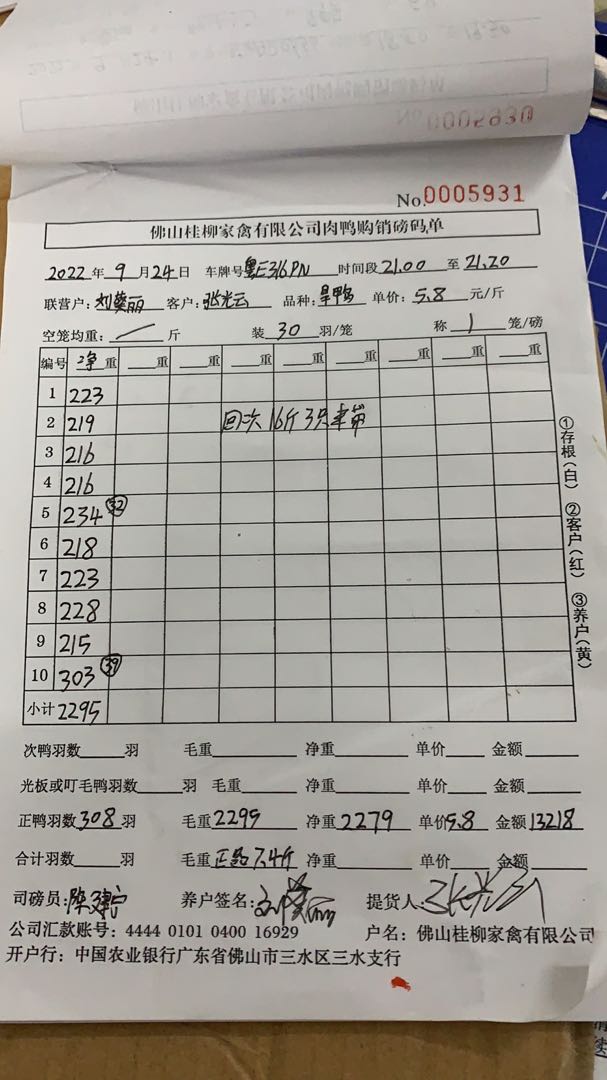 No.0005930
No.0005931
佛山桂柳家禽有限公司肉鸭购销磅码单
2022年9月24日 车牌号粤E316PN 时间段21.00至21.20
联营户:刘葵丽 客户:张光云 品种:旱鸭 单价:5.8元/斤
空笼均重:/斤 装30羽/笼 称1笼/磅
编号 净重 重 重 重 重 重 重 重 重
1 223
2 219 回次16斤3只
3 216
4 216
5 234 32
6 218
7 223
8 228
9 215
10 303 39
小计 2295
①存根(白) ②客户(红) ③养户(黄)
次鸭羽数 羽 毛重 净重 单价 金额
光板或叮毛鸭羽数 羽 毛重 净重 单价 金额
正鸭羽数308羽 毛重2295 净重2279 单价5.8 金额13218
合计羽数 羽 毛重 7.4斤 净重 单价 金额
司磅员: 养户签名: 提货人:张光云
公司汇款账号: 4444 0101 0400 16929 户名: 佛山桂柳家禽有限公司
开户行: 中国农业银行广东省佛山市三水区三水支行